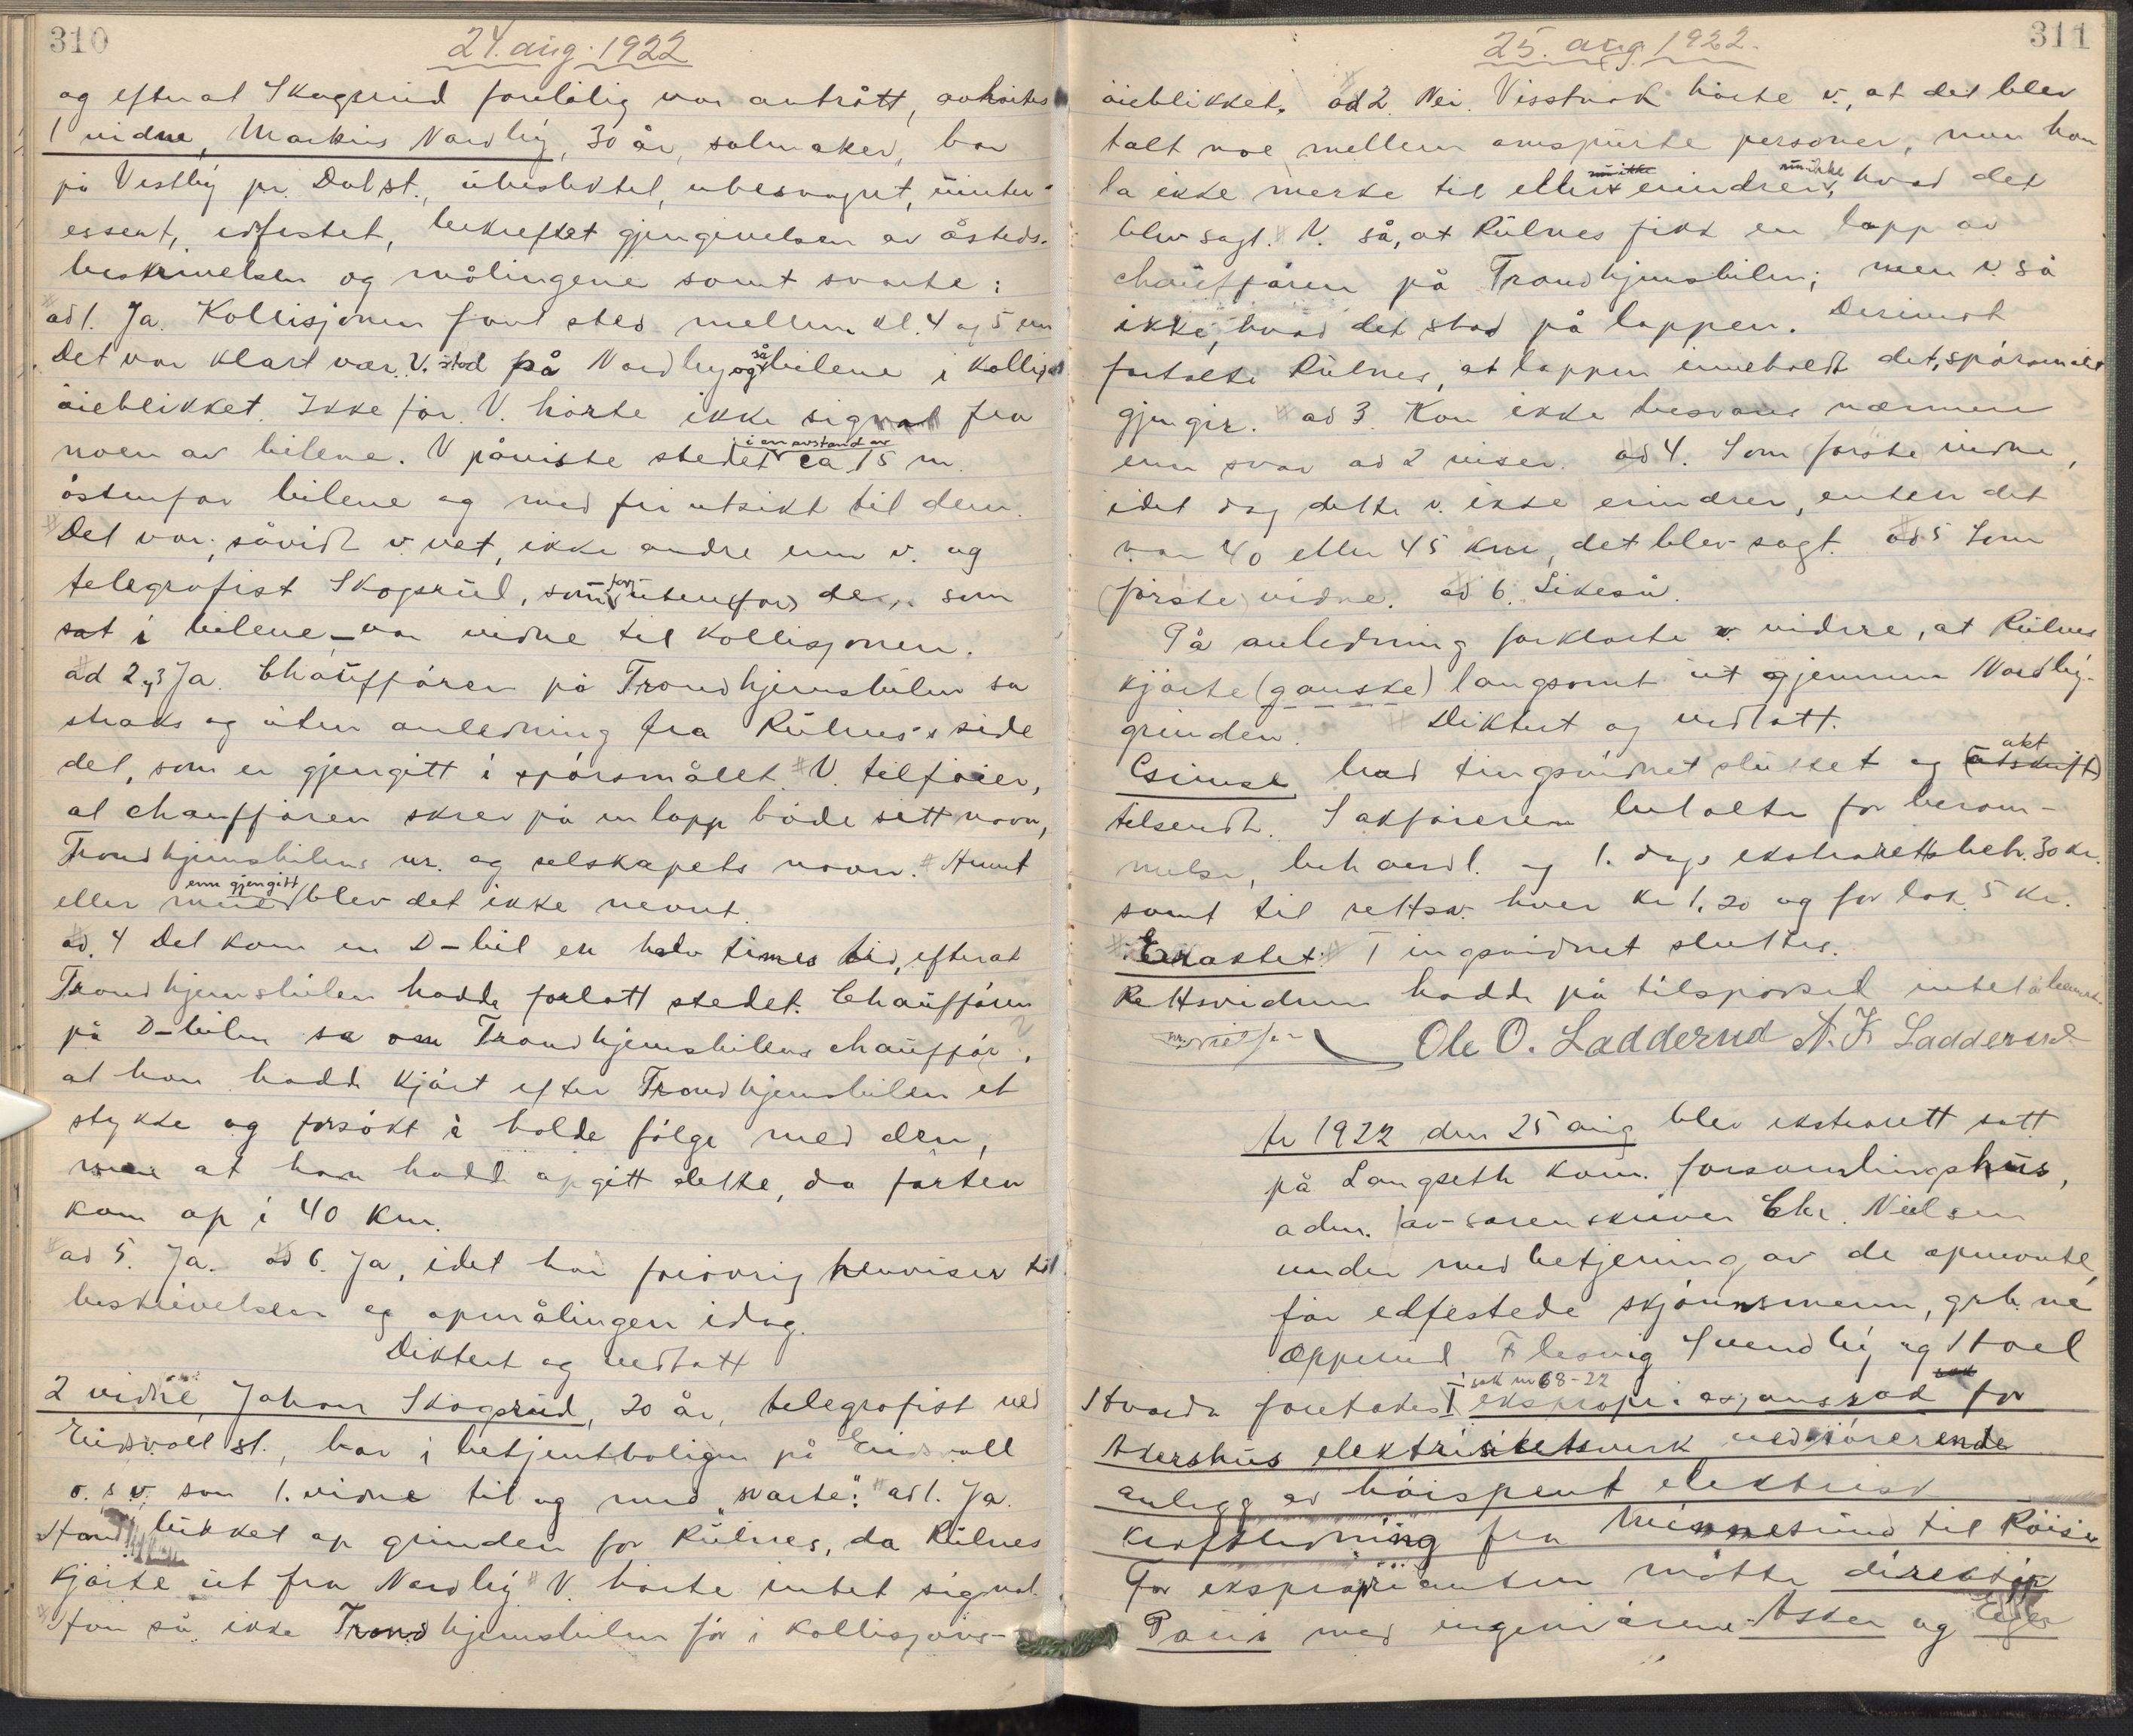 310
24. aug. 1922
og efterat Skogsrud foreløbig var avtrått, avhørtes
1 vidne, Markus Nordby, 30 år, salmaker, bor
på Vestby pr. Dal st., ubeslektet, ubesvogret, uinter-
essert, edfestet, bekreftet gjengivelsen av åsteds-
beskrivelsen og målingene samt svarte:
ad 1. Ja. Kollisjonen fant sted mellem kl. 4 og 5 em
Det var klart vær. V. stod på Nordby og så bilene i kollisj.
øieblikket. Ikke før. V. hørte ikke signal fra
noen av bilene. V påviste stedet i en avstand av ca 15 m.
østenfor bilene og med fri utsikt til dem.
Det var, såvidt v. vet, ikke andre enn v. og
telegrafist Skogsrud, som utenfor de, som
sat i bilene – var vidne til kollisjonen.
ad 2 og 3 Ja. Chaufføren på Trondhjemsbilen sa
straks og uten anledning fra Rulnes's side
det, som er gjengitt i spørsmålet. V. tilføier,
at chaufføren skrev på en lapp både sitt navn,
Trondhjemsbilens nr. og selskapets navn. Annet
eller mere enn gjengitt blev det ikke nevnt.
ad. 4 Det kom en D-bil en halv times tid, efterat
Trondhjemsbilen hadde forlatt stedet. Chaufføren
på D-bilen sa om Trondhjemsbilens chauffør,
at han hadde kjørt efter Trondhjemsbilen et
stykke og forsøkt å holde følge med den,
men at han hadde opgitt dette, da farten
kom op i 40 km.
ad 5. Ja. ad 6. Ja, idet han forøvrig henviser til
beskrivelsen og opmålingen idag.
Diktert og vedtatt
2 vidne, Johan Skogsrud, 20 år, telegrafist ved
Eidsvoll st., bor i betjentboligen på Eidsvoll
o.s.v. som 1. vidne til og med "svarte": ad 1. Ja.
Han lukket op grinden for Rulnes, da Rulnes
kjørte ut fra Nordby. V. hørte intet signal.
Han så ikke Trondhjemsbilen før i kollisjons-
311
25. aug 1922.
øieblikket. ad 2. Nei. Visstnok hørte v., at det blev
talt noe mellem omspurte personer, men han
la ikke merke til eller erindrer nu ikke, hvad det
blev sagt. V. så, at Rulnes fikk en lapp av
chaufføren på Trondhjemsbilen; men v. så
ikke, hvad det stod på lappen. Derimot
fortalte Rulnes, at lappen inneholdt det, spørsmålet
gjengir. ad 3. Kan ikke besvares nærmere
enn svar ad 2 viser. ad 4. Som første vidne,
idet dog dette v. ikke erindrer, enten det
var 40 eller 45 km, det blev sagt. ad 5 Som
(første) vidne. ad 6. Likeså.
På anledning forklarte v. videre, at Rulnes
kjørte (ganske) langsomt ut gjennem Nordby-
grinden. Diktert og vedtatt.
bad tingsvidnet sluttet og akt
tilsendt. Sakføreren betalte for beram-
melse, behandl. og 1. dags ekstrarettsbeh. 30 kr.
samt til rettsv. hver kr 1,20 og for lok. 5 kr.
Eraktet: Tingsvidnet sluttes.
Rettsvidnene hadde på tilspørsel intet å bemerke.
Ole O. Ladderud N. K Ladderud
År 1922 den 25 aug blev ekstrarett satt
på Langseth kom. forsamlingshus,
adm. av sorenskriver Chr. Nielsen
under medbetjening av de opnevnte,
før edfestede skjønnsmenn, grb. ne
Opperud Flesvig Svendby og Stoel
Hvorda foretokes I sak nr 68-22 ekspropriasjonssak for
Akershus elektrisitetsverk vedrørerende
anlegg av høispent elektrisk
kraftledning fra Minnesund til Råisi
For ekspropriantens møtte direktør
Paus med ingeniørene Asker og